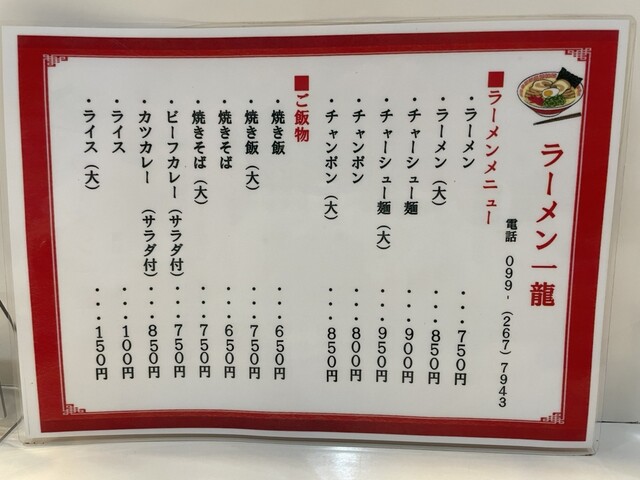 ラーメン一龍
電話 099-(267)7943
■ラーメンメニュー
・ラーメン ・・・750円
・ラーメン(大) ・・・850円
・チャーシュー麺 ・・・900円
・チャーシュー麺(大) ・・・950円
・チャンポン ・・・800円
・チャンポン(大) ・・・850円
■ご飯物
・焼き飯 ・・・650円
・焼き飯(大) ・・・750円
・焼きそば ・・・650円
・焼きそば(大) ・・・750円
・ビーフカレー(サラダ付) ・・・750円
・カツカレー(サラダ付) ・・・850円
・ライス ・・・100円
・ライス(大) ・・・150円